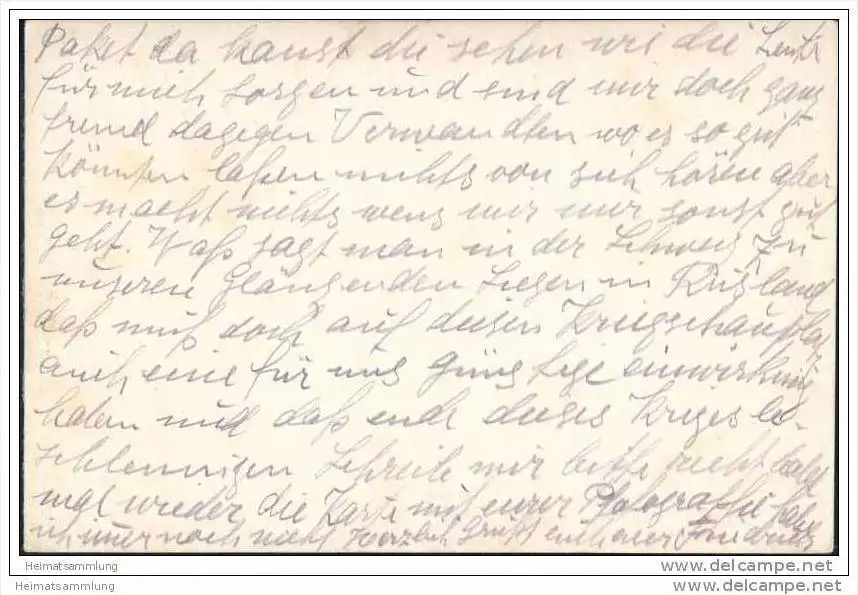 Paket da kanst du sehen wie die Leute
für mich sorgen und sind mir doch ganz
fremd dagegen Verwandten wo es so gut
könnten laßen nichts von sich hören aber
es macht nichts wens mir nur sonst gut
geht. Waß sagt man in der Schweiz zu
unseren Glänzenden Siegen in Rußland
daß muß doch auf diesen Kriegschauplatz
auch eine für uns günstige einwirkung
haben und daß ende dieses Krieges be-
schleunigen Schreibe mir bitte recht bald
mal wieder die Karte mit eurer Photograffie habe
ich imer noch nicht Herzlich Grüßt euch euer
www.delcampe.net
Heimatsammlung
Heimatsammlung
www.delcampe.net